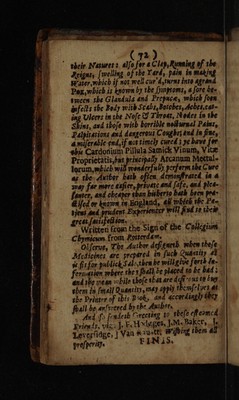 ( 72 )
their Natures: also for a Clap, Running of the
Reigns, swelling of the Yard, pain in making
Water, which if not well cur'd, turns into a grand
Pox, which is known by the symptoms, a sore be-
tween the Glandula and Prepuce, which soon
infects the Body with Scabs, Botches, Aches, eat-
ing Ulcers in the Nose & Throat, Nodes in the
Shins, and those with horrible nocturnal Pains,
Palpitations and dangerous Coughs; and in fine,
a miserable end, if not timely cured: where for
Cardonium Pillula Samich Vinum, Vitæ
Proprietatis, but principally Arcanum Mettal-
lorum, which will wonderfully perform the Cure
as the Author hath often demonstrated in a
way far more easier, private and safe, and plea-
santer, and cheaper then hitherto hath been pra-
ctised or known in England, all which the Pa-
tient and prudent Experiencer will find to their
great satisfaction.
Written from the Sign of the Collegium
Chymicum from Rotterdam.
Observe, The Author designeth when those
Medicines are prepared in such Quantity as
is fit for publick Sale, then he will give forth In-
formation where they shall be placed to be had:
and the mean while those that are to buy
them in small Quantity, may apply themselves at
the Printer of this Book, and accordingly they
shall be answered by the Author.
And so sendeth Greeting to those esteemed
Friends, viz. J. F. J. M. Baker, J.
Loveridge, J Van wishing them all
prosperity. FINIS.